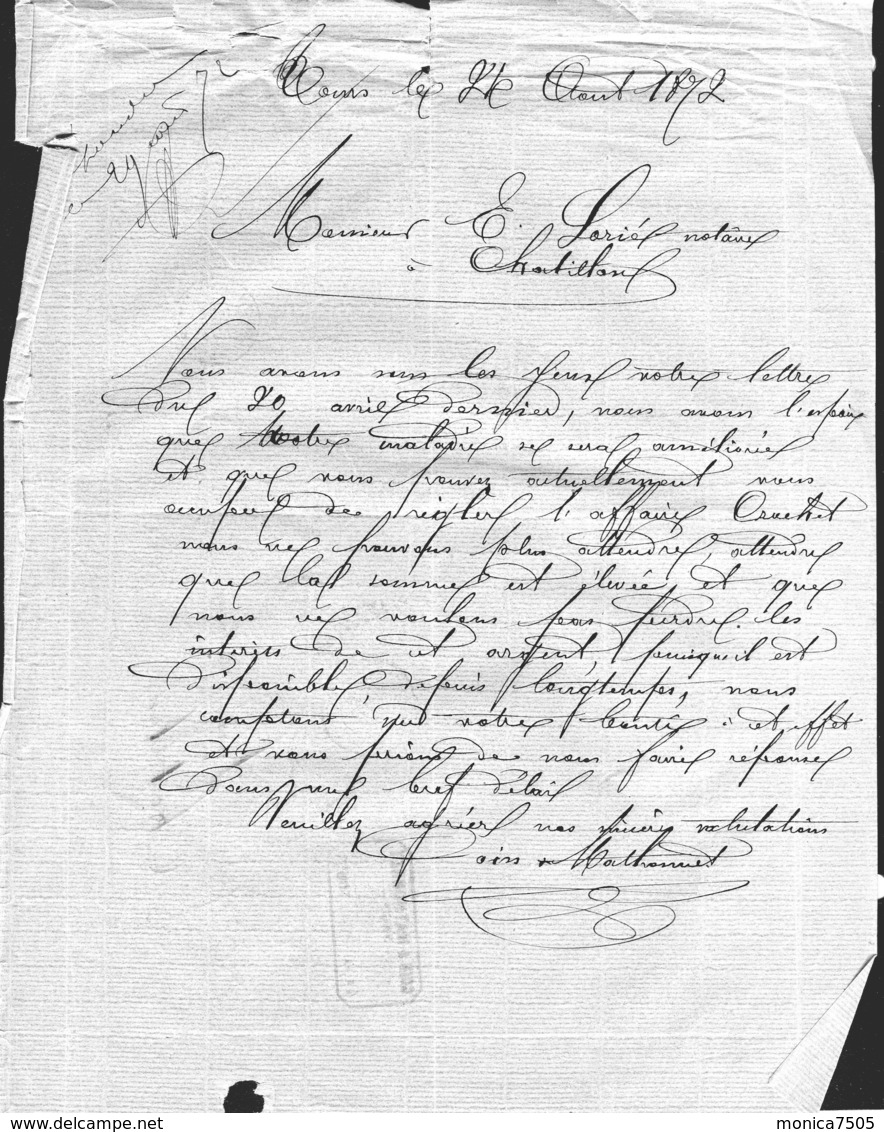 Tours le 24 Aout 1872
29 aout 72
Monsieur E. Lorié notaire
à Chatillon
Nous avons sous les yeux votre lettre
du 20 avril dernier, nous avons l'espoir
que votre maladie se sera améliorée
et que vous pouvez actuellement vous
occuper de régler l'affaire Cruchet
nous ne pouvons plus attendre, attendu
que la somme est élevée et que
nous ne voulons pas perdre les
intérêts de cet argent, puisqu'il est
disponible depuis longtemps, nous
comptons sur votre bonté à cet effet
et vous prions de nous faire réponse
dans un bref délai
Veuillez agréer nos sincères salutations
Mathonnet
monica7505